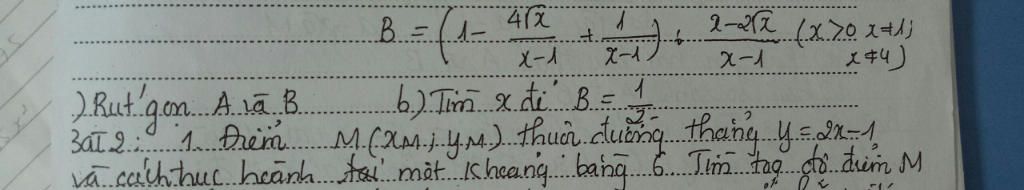 B = (1 - 4√x / x-1 + 1 / x-1) : x-2√x / x-1 (x>0 x≠1; x≠4)
) Rút gọn A và B b.) Tìm x để B = 1/2
Bài 2: 1. Điểm M (xM; yM) thuộc đường thẳng y = 2x-1
và cách trục hoành một khoảng bằng 6 Tìm tọa độ điểm M